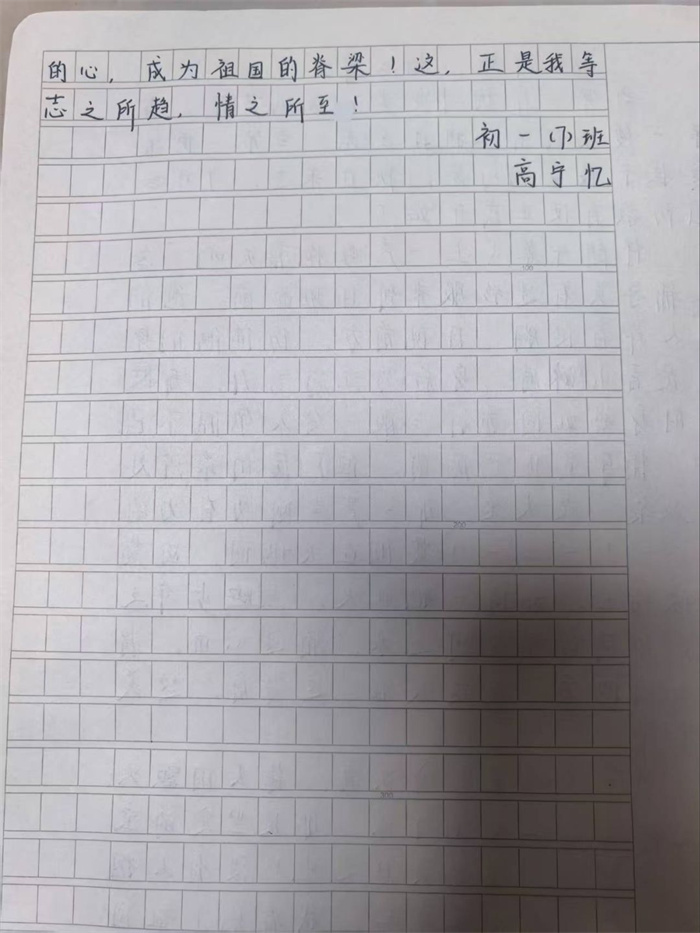 的心，成为祖国的脊梁！这，正是我等
志之所趋，情之所至！
初一（7）班
高宁忆
100
200
300